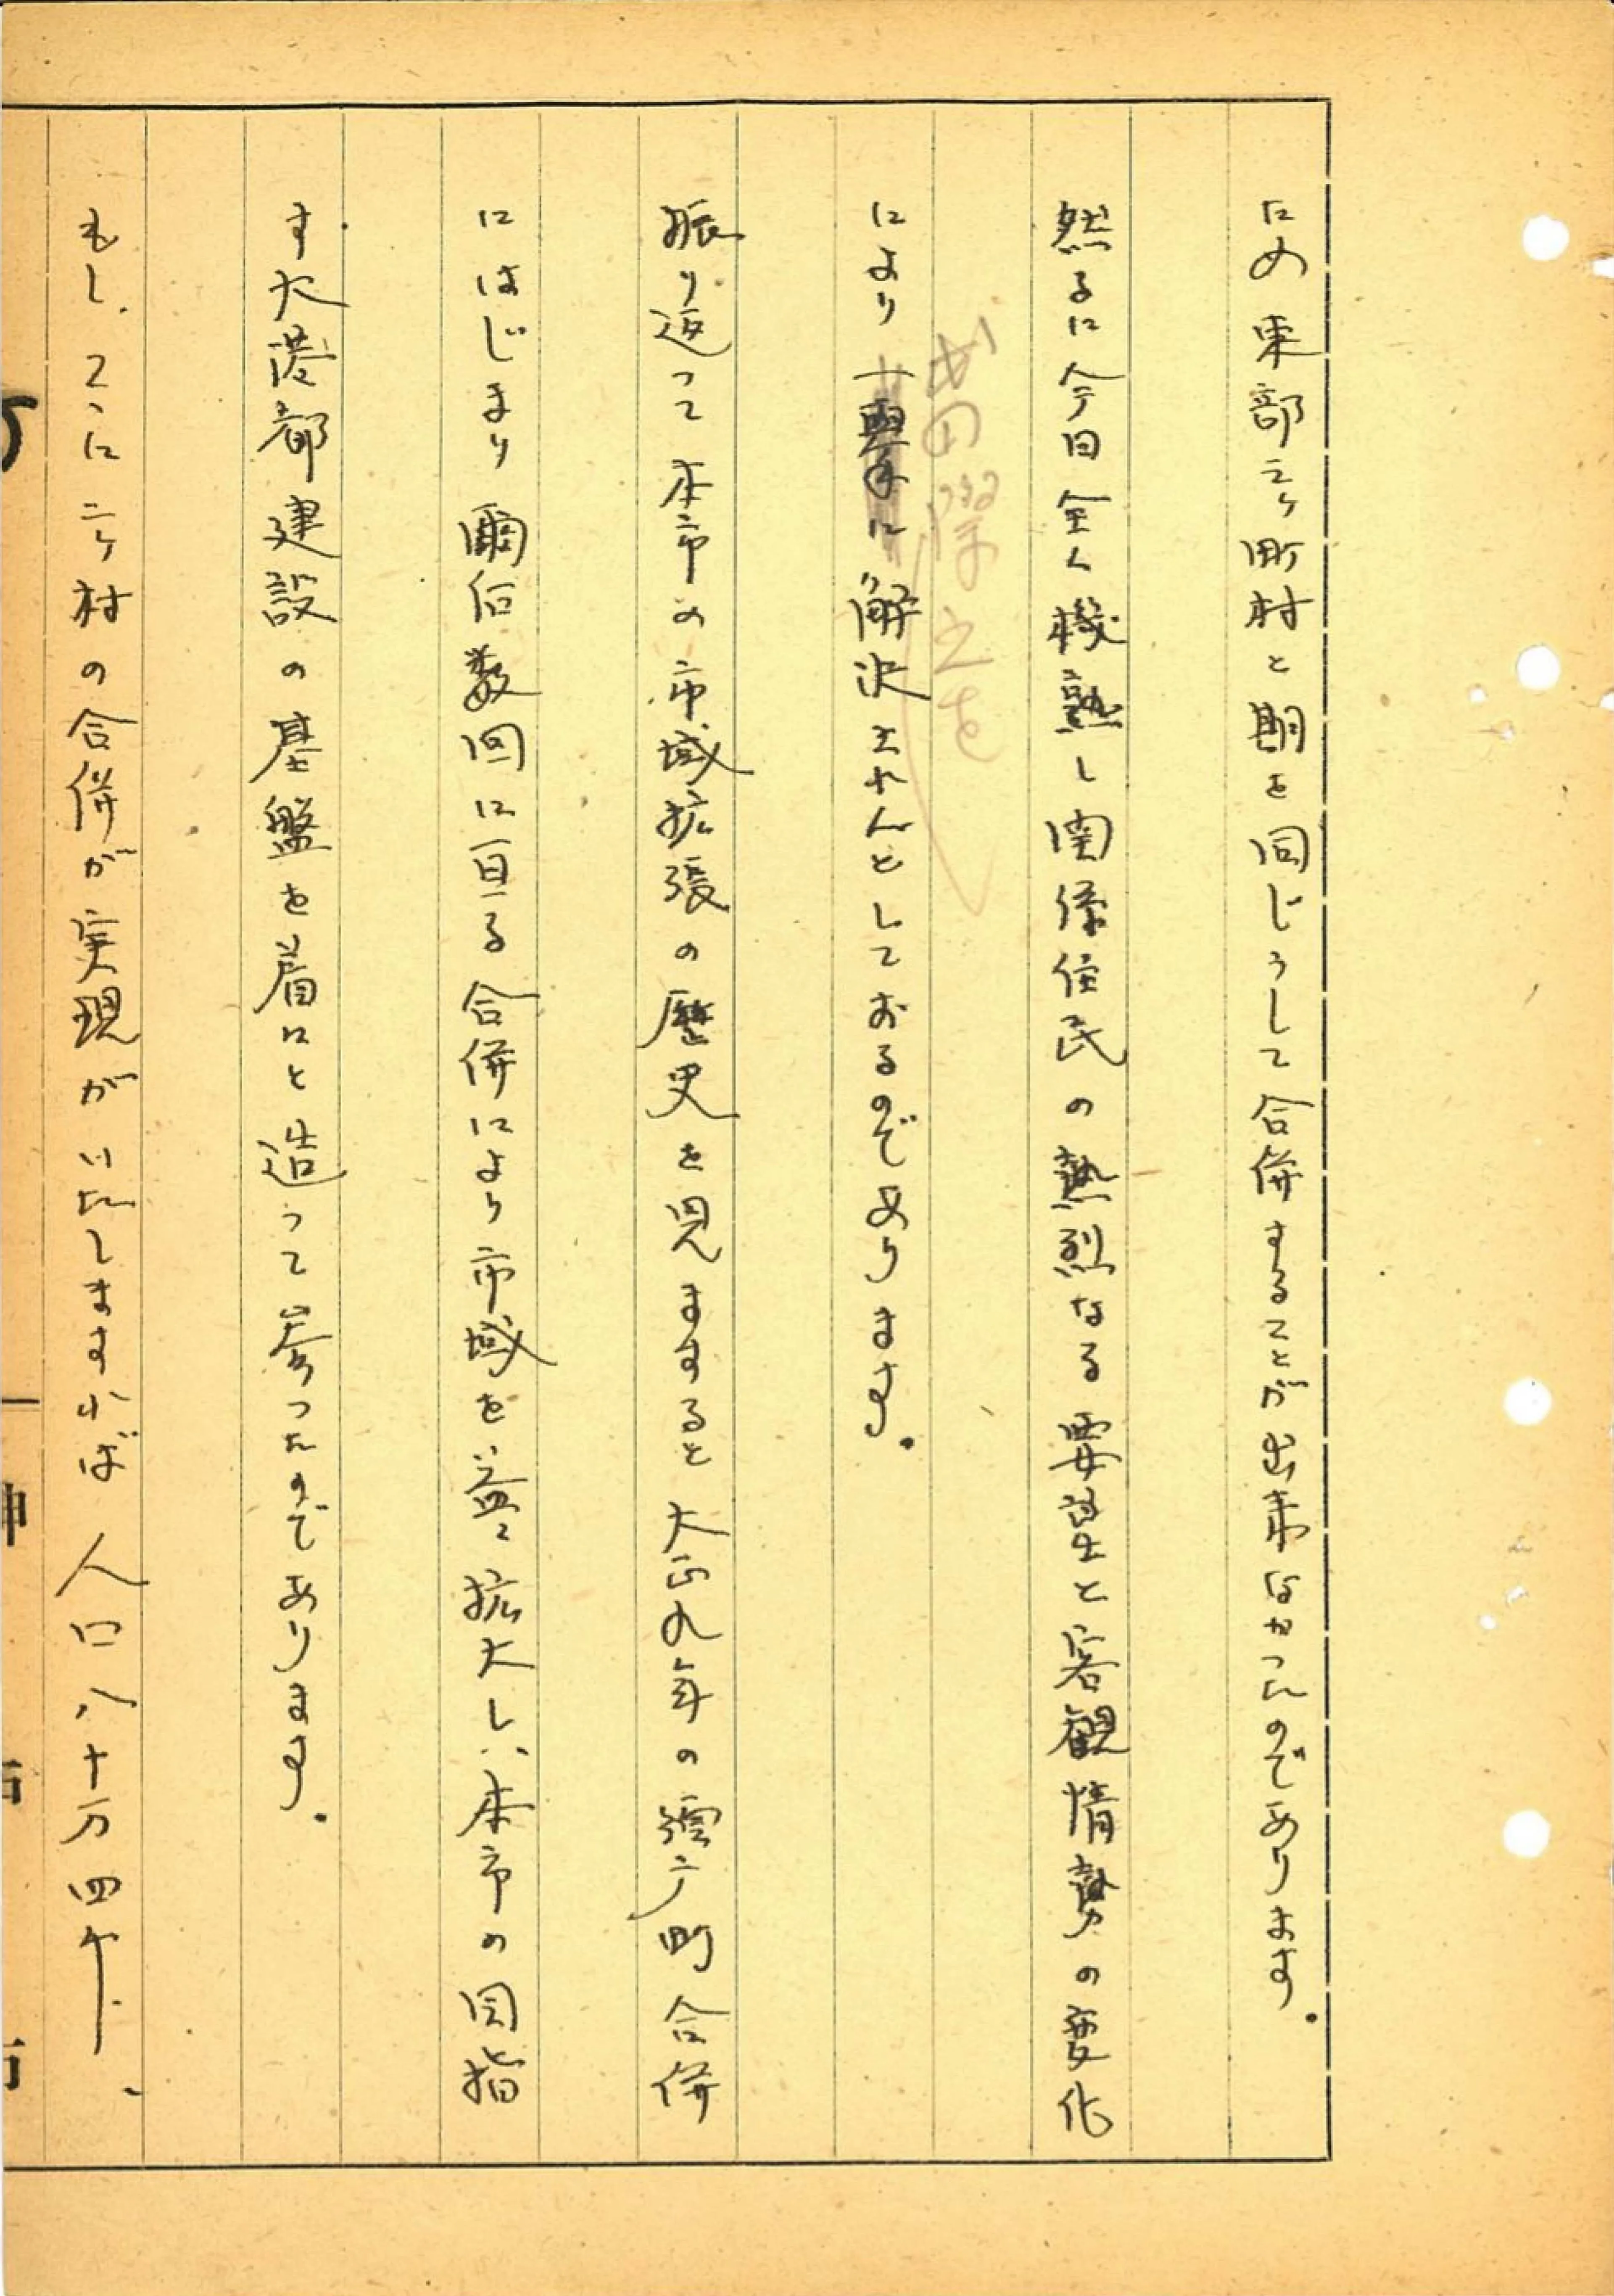 ため東部三ヶ町村と期を同じうして合併することが出来なかったのであります。
然るに今日全く機熟し関係住民の熱烈なる要望と客観情勢の変化
により一挙に解決されんとしておるのであります。
振り返って本市の市域拡張の歴史を見ますると大正九年の須磨町合併
にはじまり爾后数回に亘る合併により市域を益々拡大し、本市の目指
す大港都建設の基盤を着々と造って参ったのであります。
もし、こゝに二ヶ村の合併が実現がいたしますれば人口八十万四千